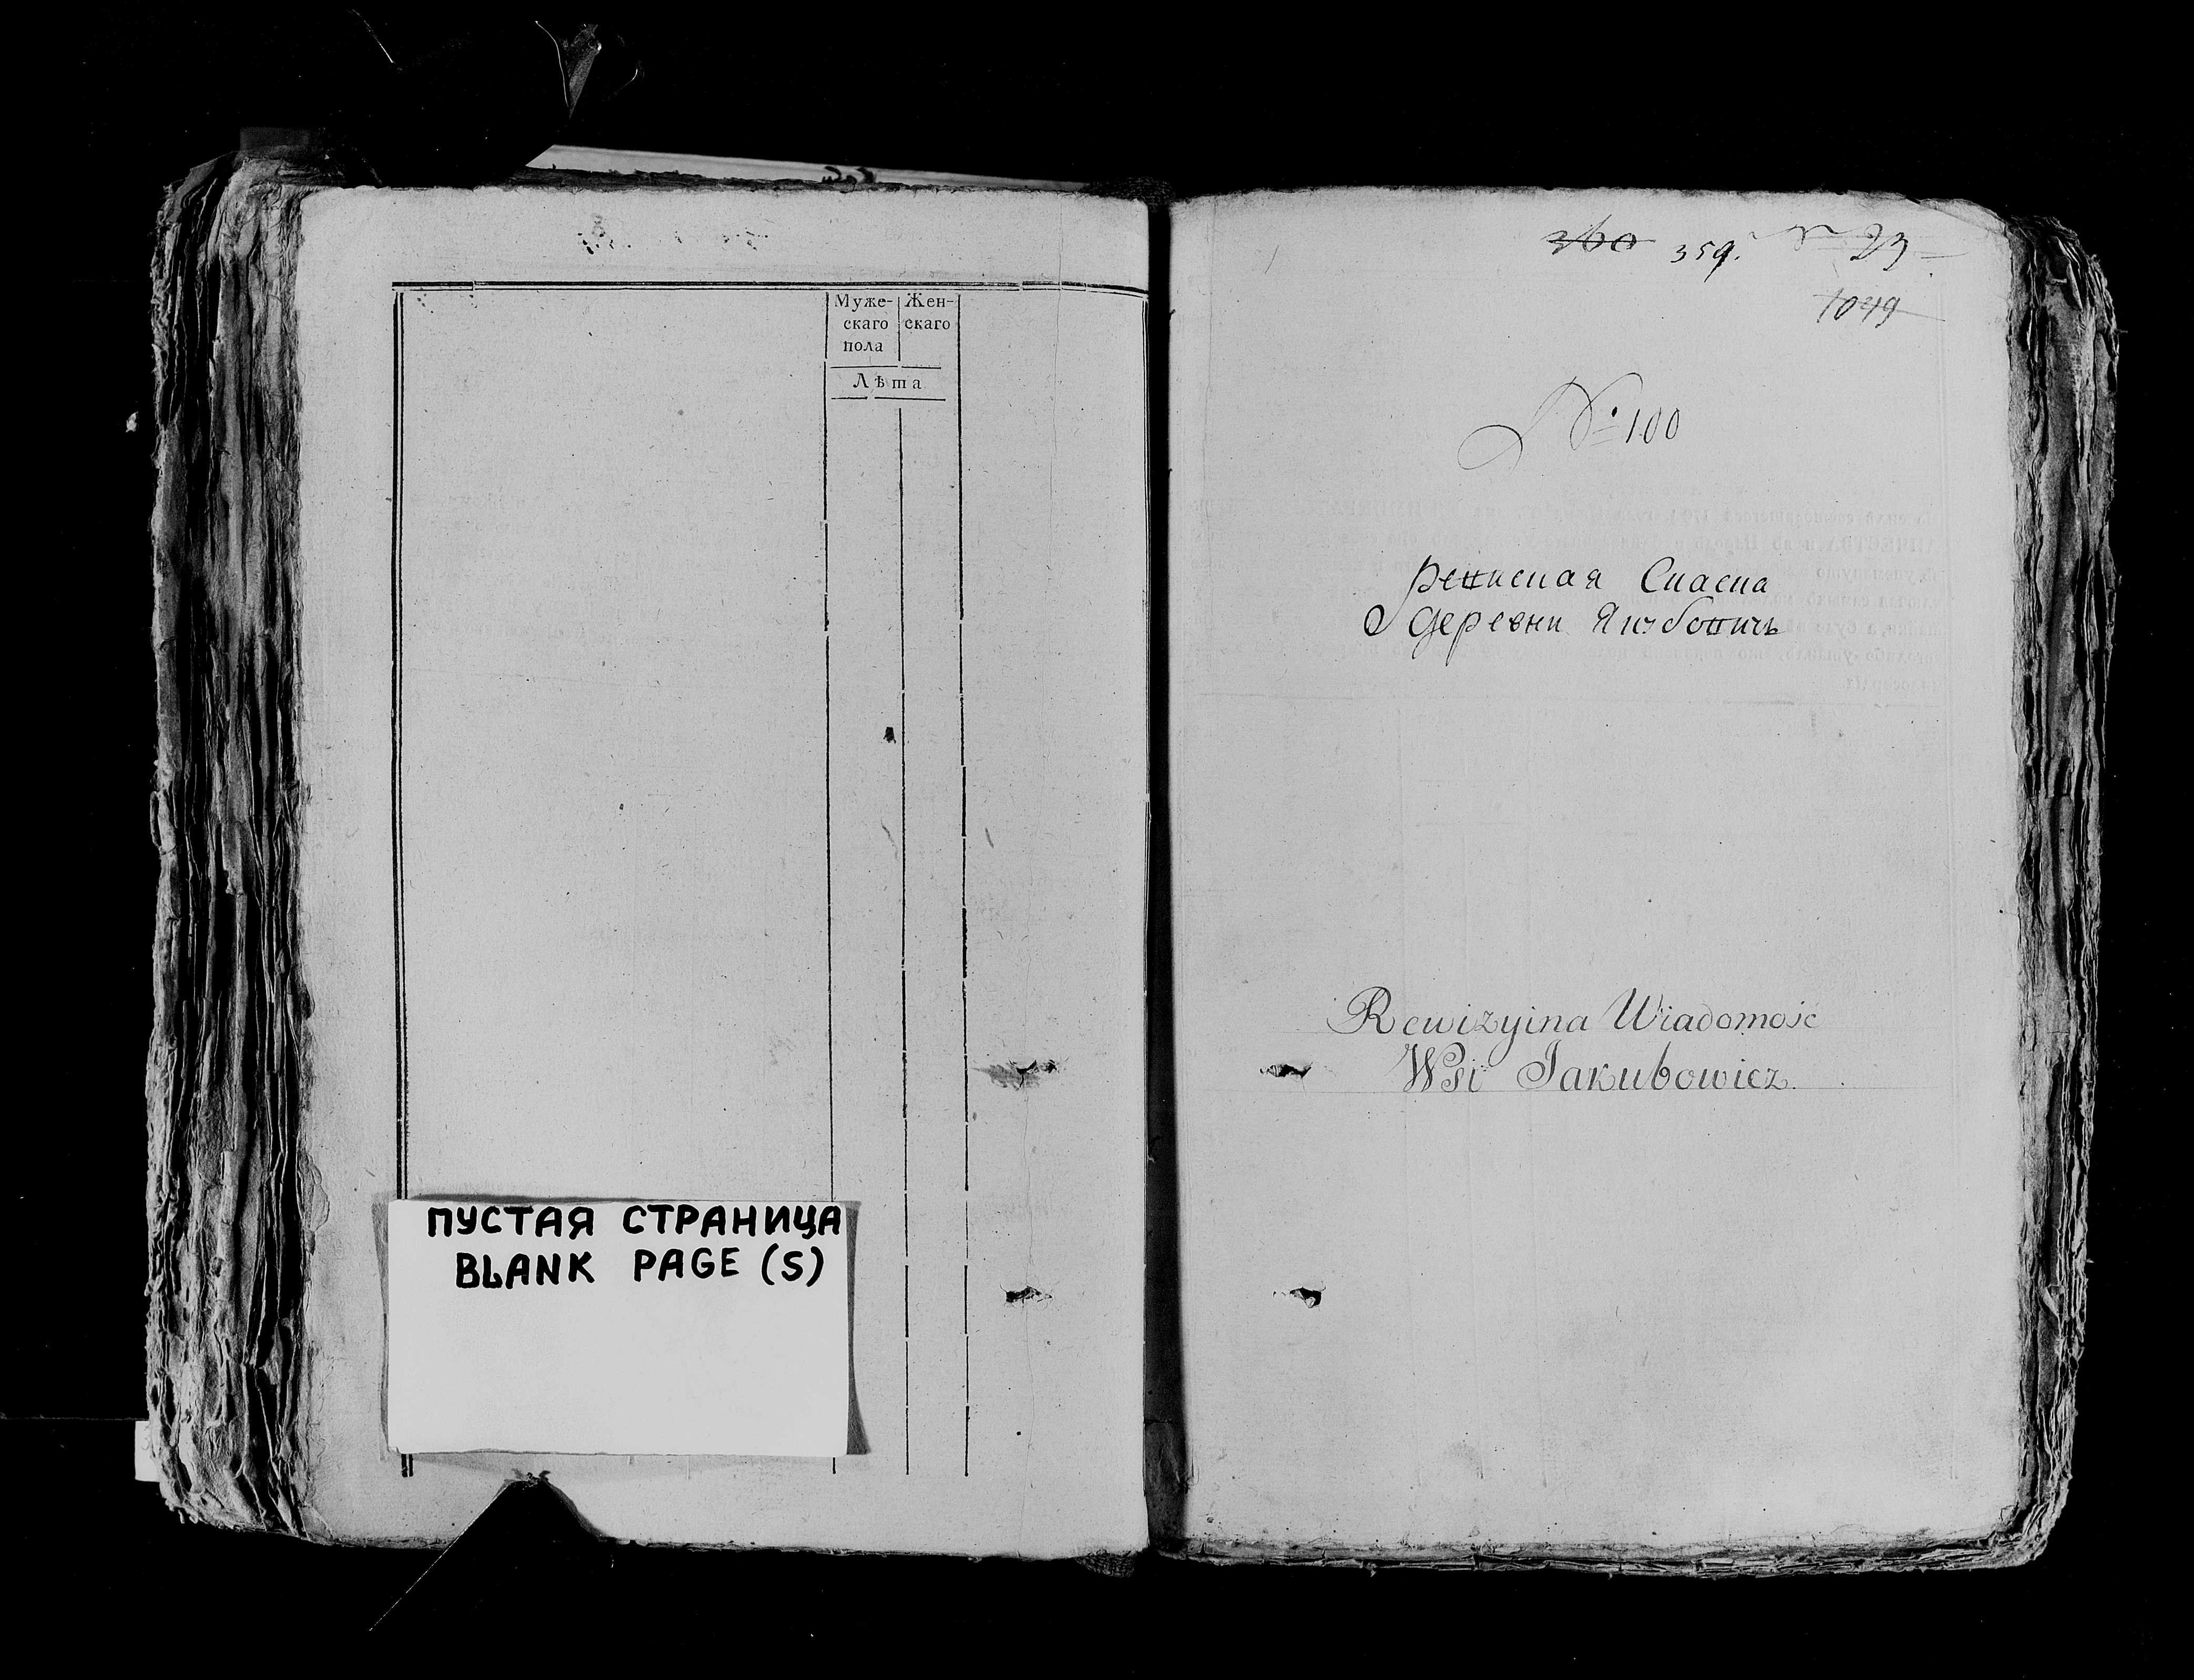 Муже- Жен-
скаго скаго
пола
Лѣта
ПУСТАЯ СТРАНИЦА
BLANK PAGE (S)
360 359. 23
1049
№ 100
Ревиская Скаска
деревни Якубовичь
Rewizyina Wiadomość
Wsi Jakubowicz.